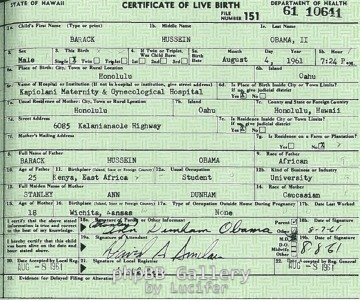 STATE OF HAWAII CERTIFICATE OF LIVE BIRTH DEPARTMENT OF HEALTH
FILE NUMBER 151 61 10641
1a. Child's First Name (Type or print) 1b. Middle Name 1c. Last Name
BARACK HUSSEIN OBAMA, II
2. Sex 3. This Birth 4. If Twin or Triplet, Was Child Born 5a. Birth Date Month Day Year 5b. Hour
Male Single Twin Triplet 1st 2nd 3rd August 4, 1961 7:24 P.M.
6a. Place of Birth: City, Town or Rural Location 6b. Island
Honolulu Oahu
6c. Name of Hospital or Institution (If not in hospital or institution, give street address) 6d. Is Place of Birth Inside City or Town Limits? If no, give judicial district
Kapiolani Maternity & Gynecological Hospital Yes No
7a. Usual Residence of Mother: City, Town or Rural Location 7b. Island 7c. County and State or Foreign Country
Honolulu Oahu Honolulu, Hawaii
7d. Street Address 7e. Is Residence Inside City or Town Limits? If no, give judicial district
6085 Kalanianaole Highway Yes No
7f. Mother's Mailing Address 7g. Is Residence on a Farm or Plantation?
Yes No
8. Full Name of Father 9. Race of Father
BARACK HUSSEIN OBAMA African
10. Age of Father 11. Birthplace (Island, State or Foreign Country) 12a. Usual Occupation 12b. Kind of Business or Industry
25 Kenya, East Africa Student University
13. Full Maiden Name of Mother 14. Race of Mother
STANLEY ANN DUNHAM Caucasian
15. Age of Mother 16. Birthplace (Island, State or Foreign Country) 17a. Type of Occupation Outside Home During Pregnancy 17b. Date Last Worked
18 Wichita, Kansas None
I certify that the above stated information is true and correct to the best of my knowledge.
18a. Signature of Parent or Other Informant Parent Other 18b. Date of Signature
Ann Dunham Obama 8-7-61
I hereby certify that this child was born alive on the date and hour stated above.
19a. Signature of Attendant M.D. D.O. Midwife Other 19b. Date of Signature
David A Sinclair 8-8-61
20. Date Accepted by Local Reg. 21. Signature of Local Registrar 22. Date Accepted by Reg. General
AUG -8 1961 AUG -8 1961
23. Evidence for Delayed Filing or Alteration
phpBB Gallery
by Lucifer